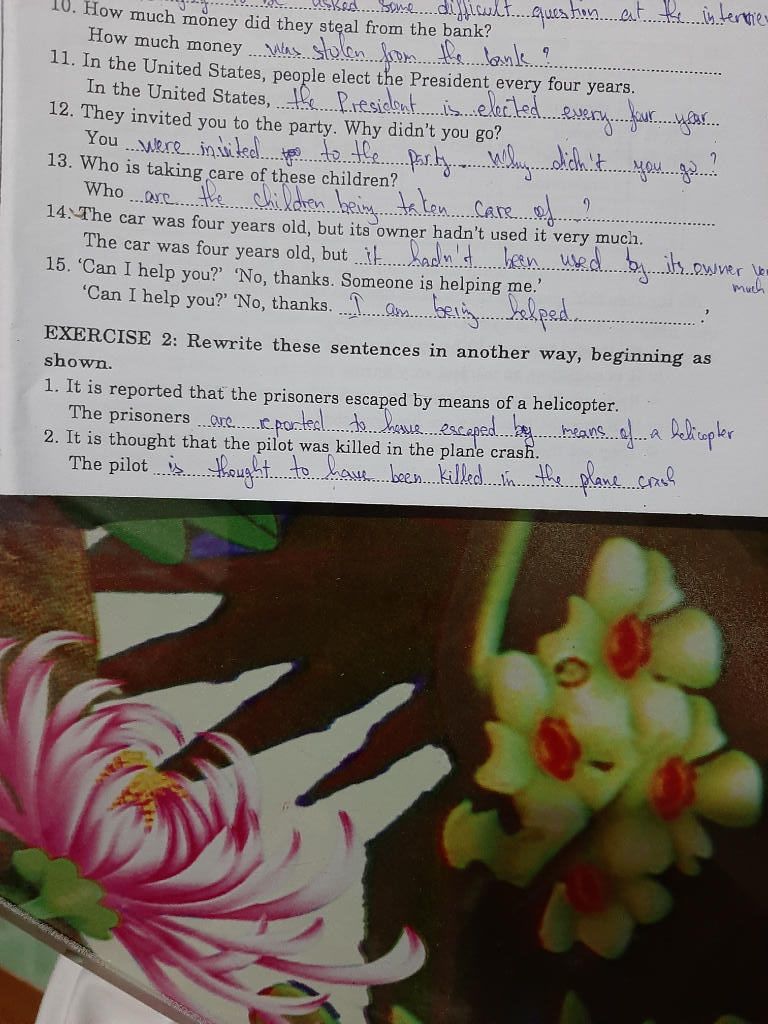 asked some difficult question at the intervie
10. How much money did they steal from the bank?
How much money was stolen from the bank ?
11. In the United States, people elect the President every four years.
In the United States, the President is elected every four year
12. They invited you to the party. Why didn't you go?
You were invited to the party. Why didn't you go ?
13. Who is taking care of these children?
Who are the children being taken care of ?
14. The car was four years old, but its owner hadn't used it very much.
The car was four years old, but it hadn't been used by its owner ve
much
15. 'Can I help you?' 'No, thanks. Someone is helping me.'
'Can I help you?' 'No, thanks. I am being helped.'
EXERCISE 2: Rewrite these sentences in another way, beginning as
shown.
1. It is reported that the prisoners escaped by means of a helicopter.
The prisoners are reported to have escaped by means of a helicopter
2. It is thought that the pilot was killed in the plane crash.
The pilot is thought to have been killed in the plane crash